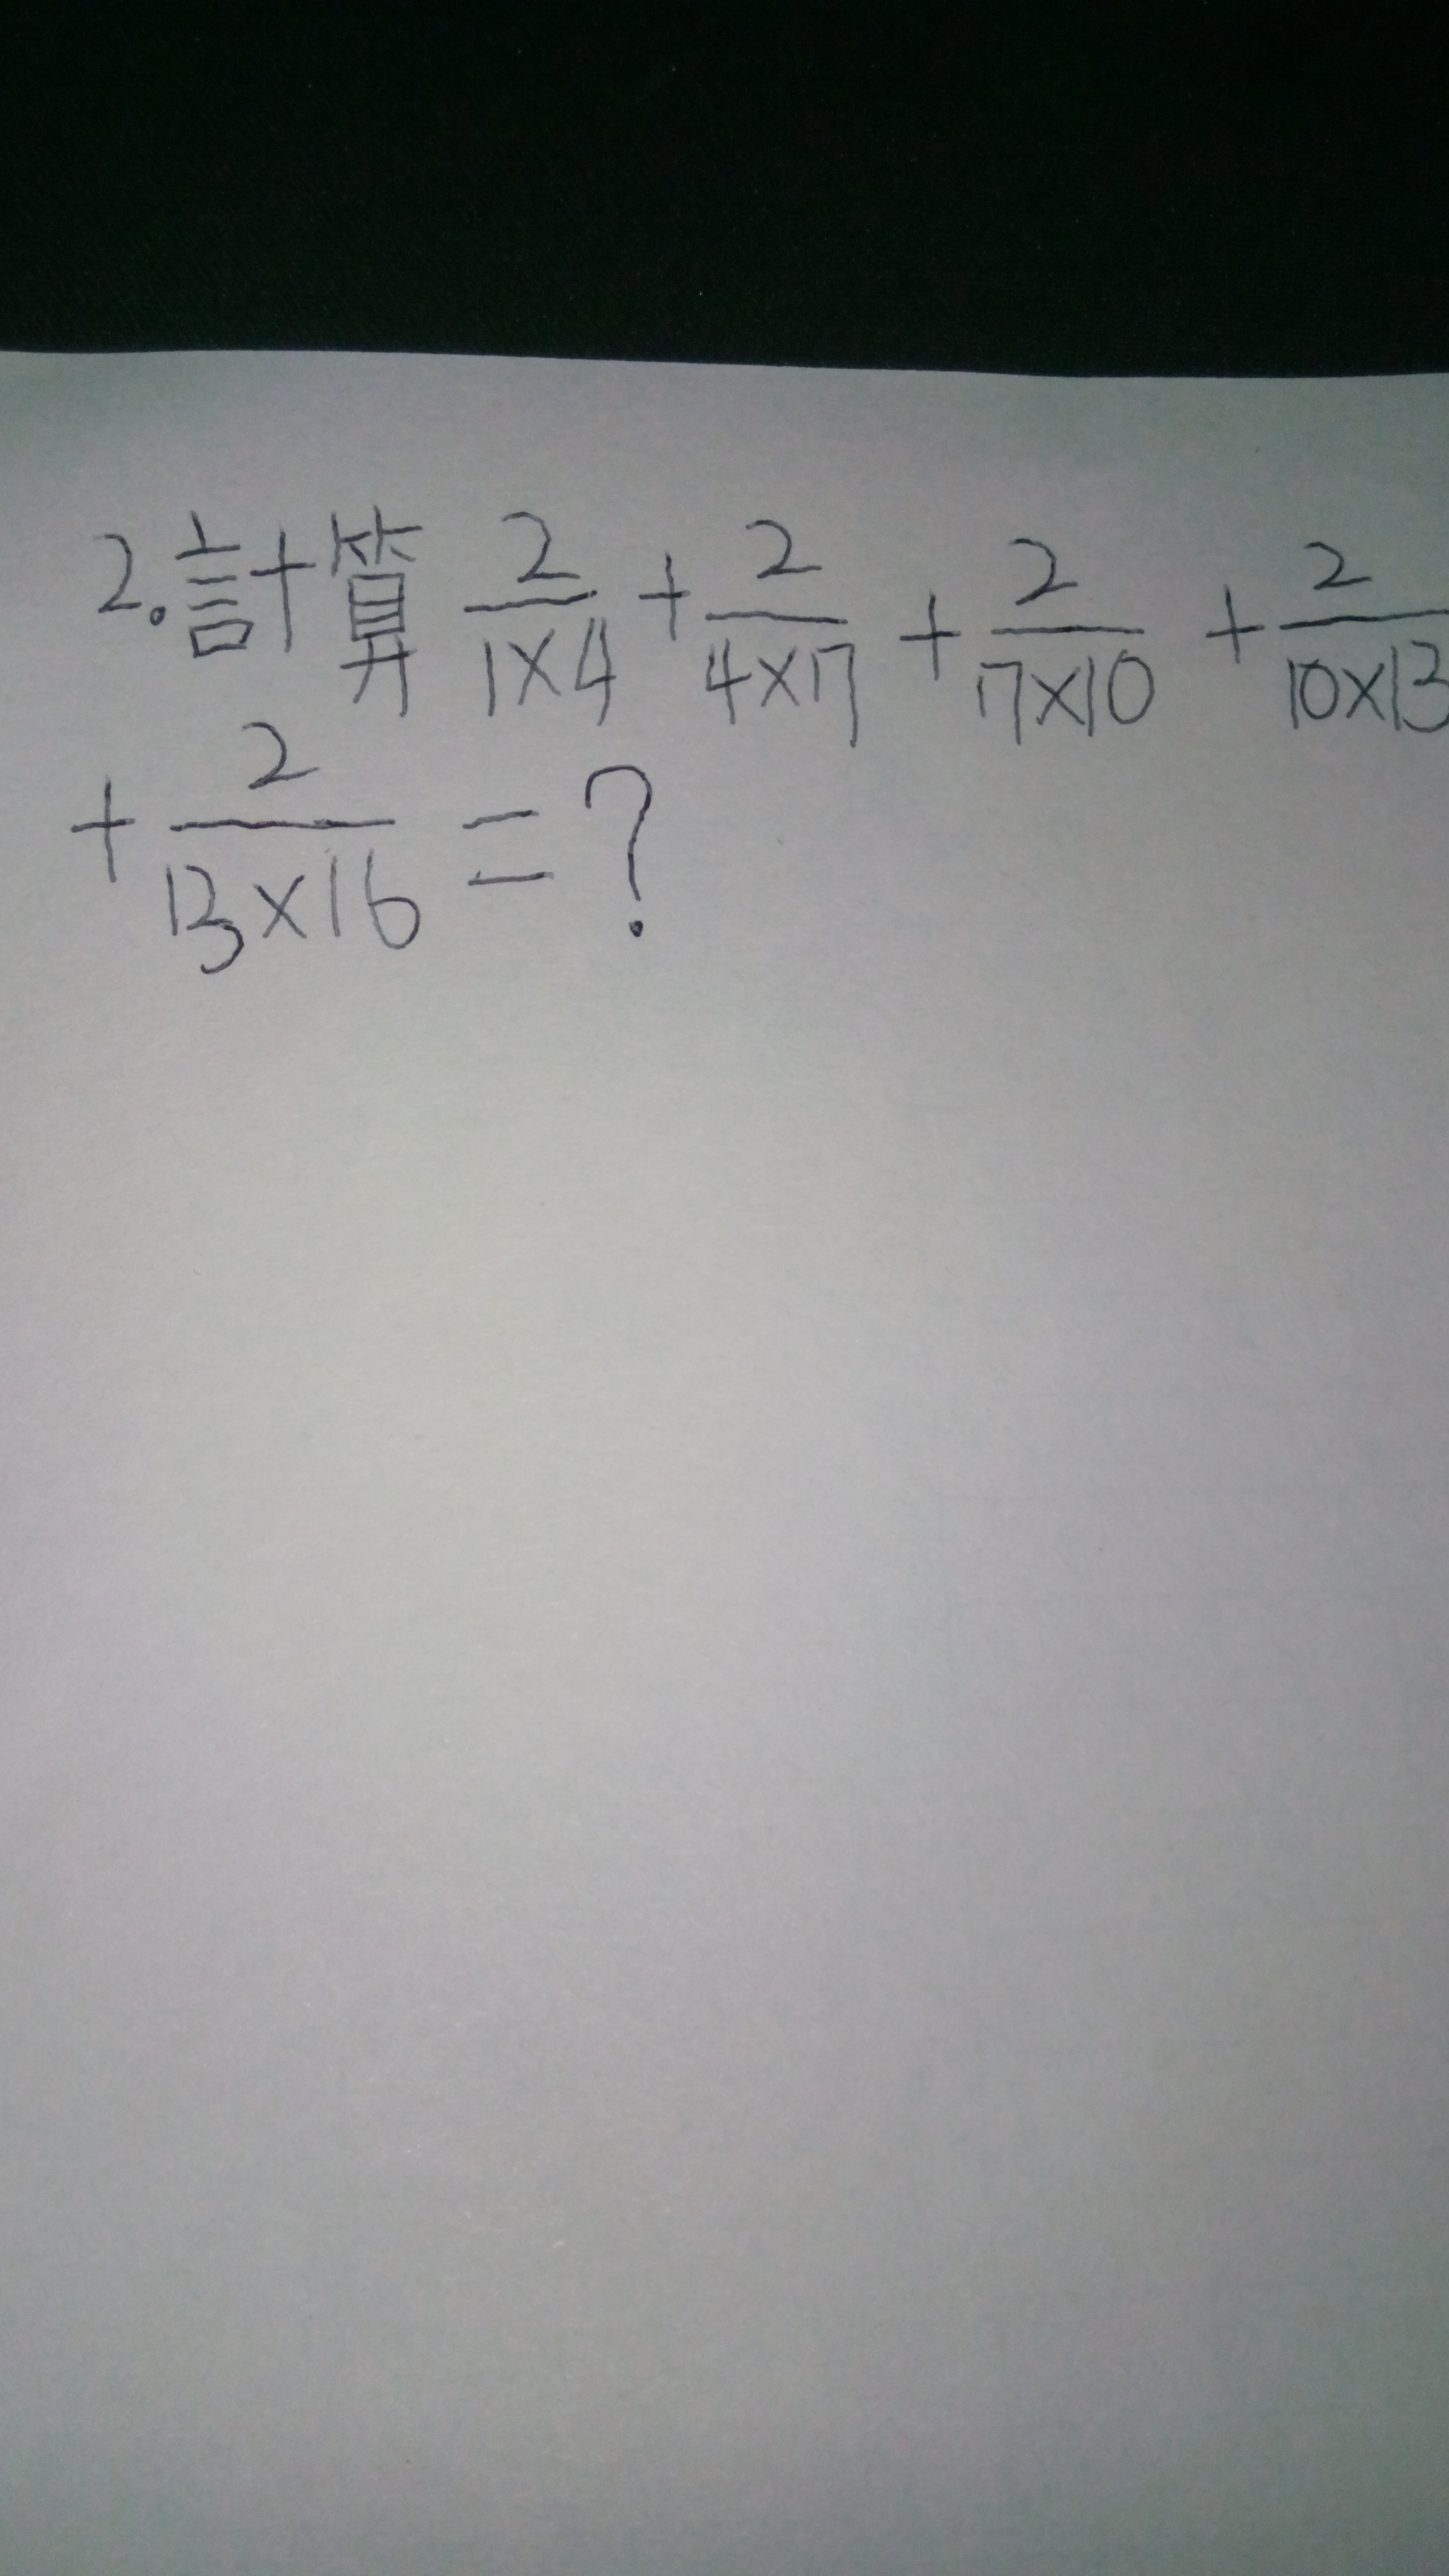 2.計算 2/1×4 + 2/4×7 + 2/7×10 + 2/10×13
+ 2/13×16 = ?